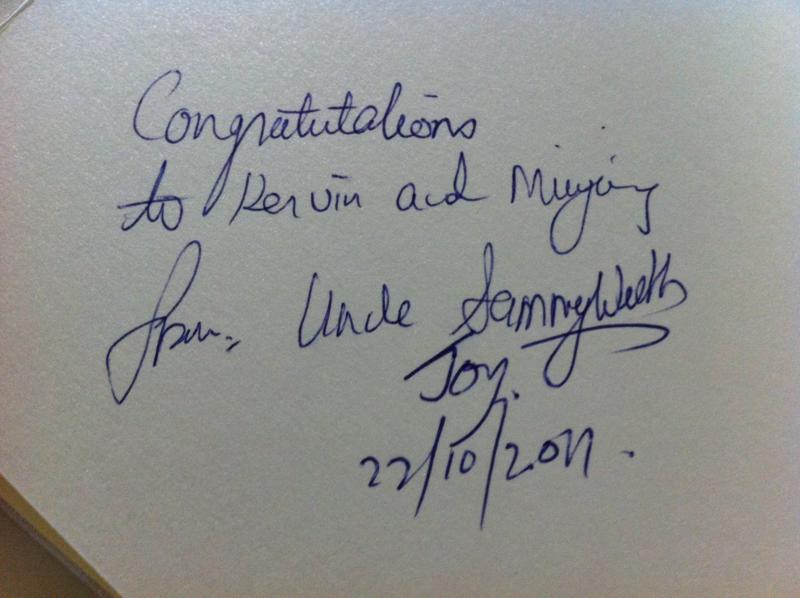 Congratutations
to Kervin and
from: Uncle Sammy
Joy.
22/10/2011.